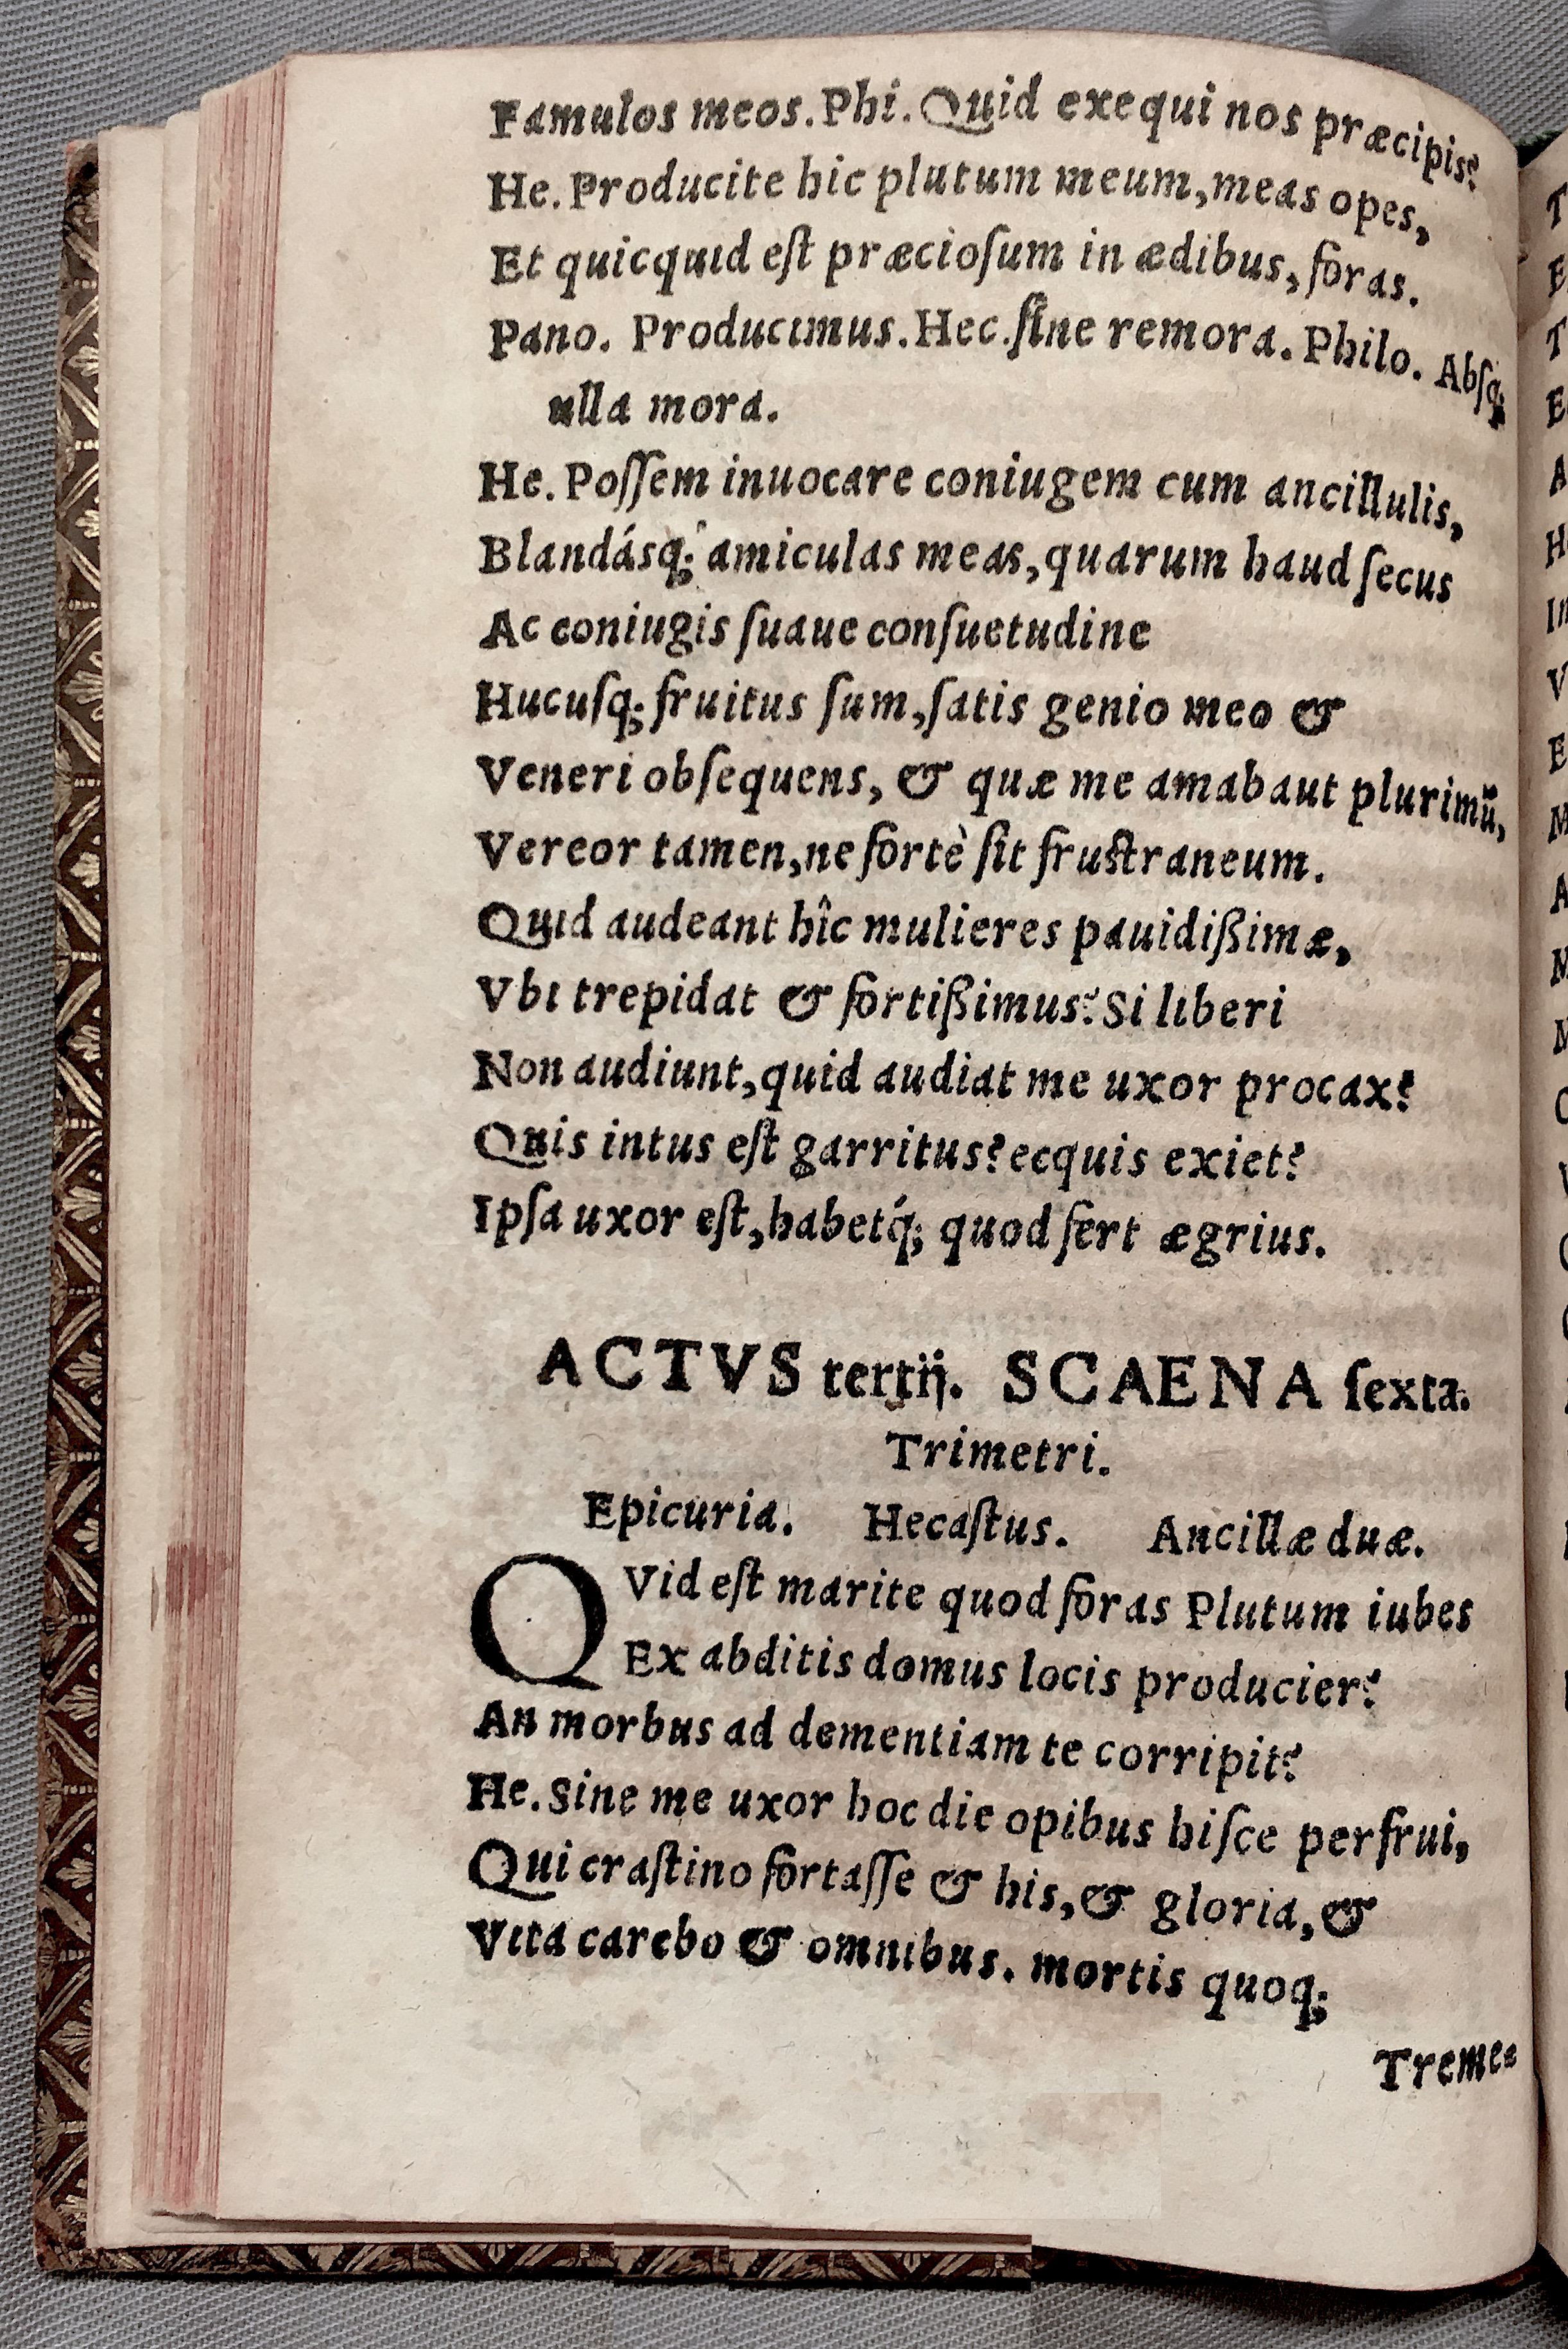 Famulos meos. Phi. Quid exequi nos præcipis?
He. Producite hic plutum meum, meas opes,
Et quicquid eſt præcioſum in ædibus, foras.
Pano. Producimus. Hec. ſine remora. Philo. Abſq;
ulla mora.
He. Poſſem inuocare coniugem cum ancillulis,
Blandásq; amiculas meas, quarum haud ſecus
Ac coniugis ſuaue conſuetudine
Hucuſq; fruitus ſum, ſatis genio meo &
Veneri obſequens, & quæ me amabaut plurimũ,
Vereor tamen, ne fortè ſit fruſtraneum.
Quid audeant hîc mulieres pauidißimæ,
Vbi trepidat & fortißimus? Si liberi
Non audiunt, quid audiat me uxor procax?
Quis intus eſt garritus? ecquis exiet?
Ipſa uxor eſt, habetq́; quod fert ægrius.
ACTVS tertij. SCAENA ſexta.
Trimetri.
Epicuria. Hecaſtus. Ancillæ duæ.
QVid eſt marite quod foras Plutum iubes
Ex abditis domus locis producier?
An morbus ad dementiam te corripit?
He. Sine me uxor hoc die opibus hiſce perfrui,
Qui craſtino fortaſſe & his, & gloria, &
Vita carebo & omnibus. mortis quoq;
Treme⸗